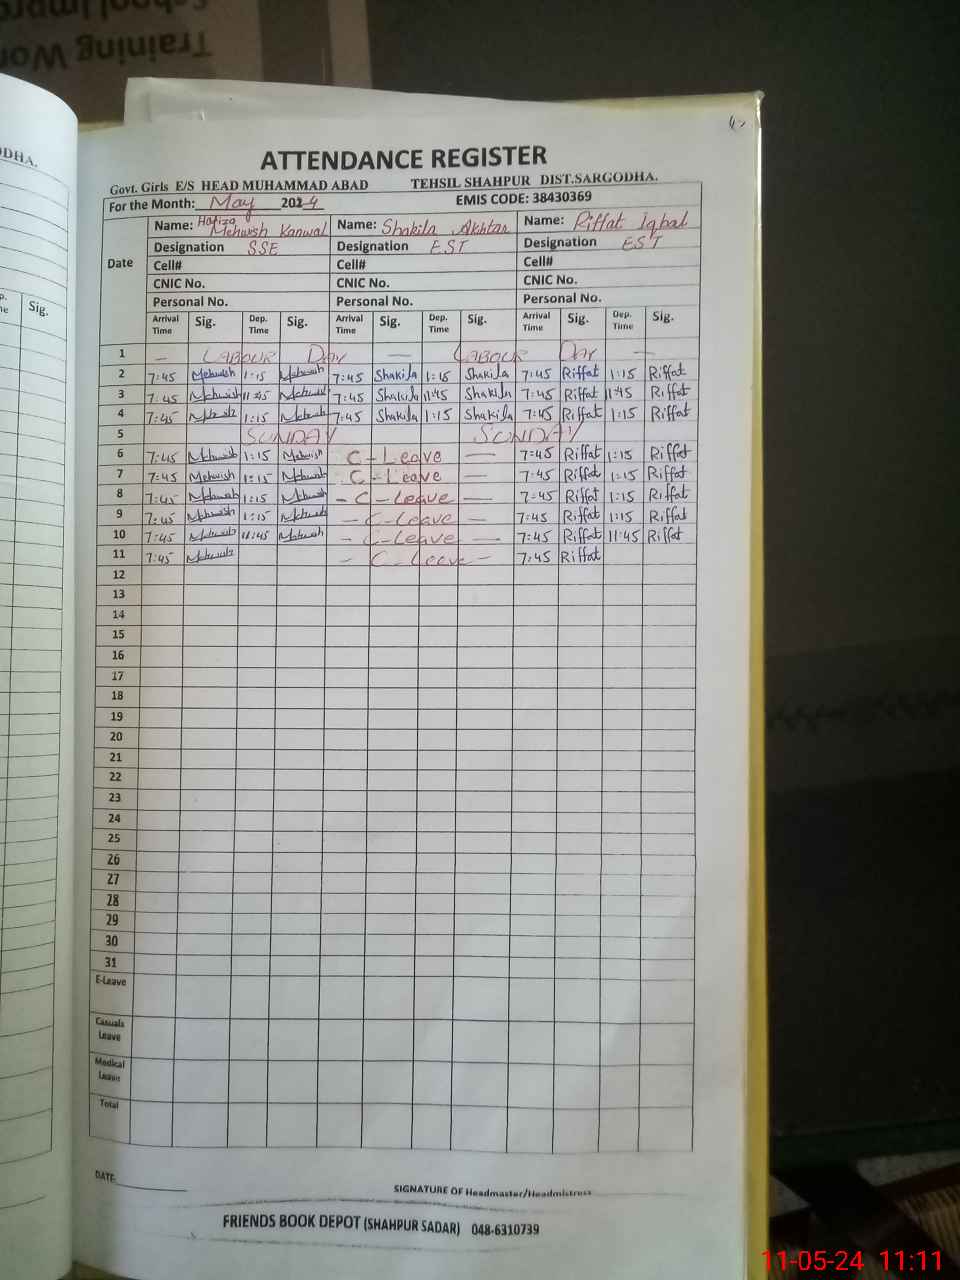 Training Wor
DHA.
ATTENDANCE REGISTER
Govt. Girls E/S HEAD MUHAMMAD ABAD TEHSIL SHAHPUR DIST.SARGODHA.
For the Month: May 2024 EMIS CODE: 38430369
Date Name: Hafiza Mehwish Kanwal Name: Shakila Akhtar Name: Riffat Iqbal
Designation SSE Designation EST Designation EST
Cell# Cell# Cell#
CNIC No. CNIC No. CNIC No.
Personal No. Personal No. Personal No.
Arrival Time Sig. Dep. Time Sig. Arrival Time Sig. Dep. Time Sig. Arrival Time Sig. Dep. Time Sig.
Sig.
1 — LABOUR DAY — LABOUR DAY —
2 7:45 Mehwish 1:15 Mehwish 7:45 Shakila 1:15 Shakila 7:45 Riffat 1:15 Riffat
3 7:45 Mehwish 11:45 Mehwish 7:45 Shakila 11:45 Shakila 7:45 Riffat 11:45 Riffat
4 7:45 Mehwish 1:15 Mehwish 7:45 Shakila 1:15 Shakila 7:45 Riffat 1:15 Riffat
5 SUNDAY SUNDAY
6 7:45 Mehwish 1:15 Mehwish C-Leave — 7:45 Riffat 1:15 Riffat
7 7:45 Mehwish 1:15 Mehwish C-Leave — 7:45 Riffat 1:15 Riffat
8 7:45 Mehwish 1:15 Mehwish - C-Leave — 7:45 Riffat 1:15 Riffat
9 7:45 Mehwish 1:15 Mehwish - C-Leave — 7:45 Riffat 1:15 Riffat
10 7:45 Mehwish 11:45 Mehwish - C-Leave — 7:45 Riffat 11:45 Riffat
11 7:45 Mehwish - C-Leave - 7:45 Riffat
12
13
14
15
16
17
18
19
20
21
22
23
24
25
26
27
28
29
30
31
E-Leave
Casuals Leave
Medical Leave
Total
DATE
SIGNATURE OF Headmaster/Headmistress
FRIENDS BOOK DEPOT (SHAHPUR SADAR) 048-6310739
11-05-24 11:11